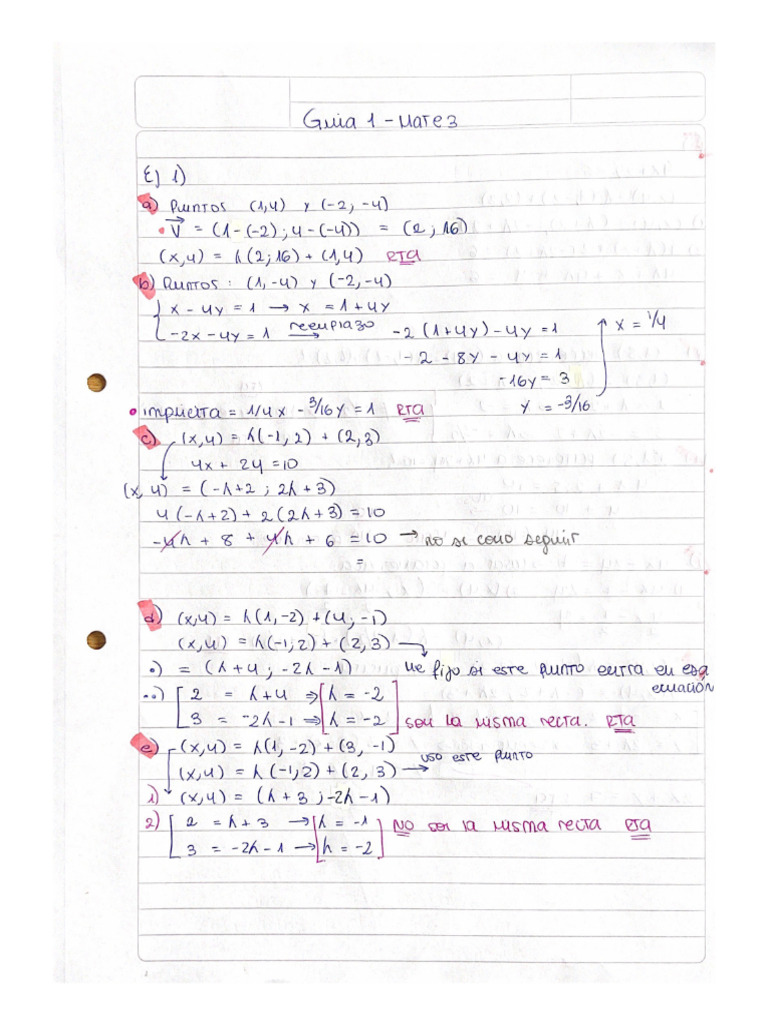 Guia 1 - Mate 3
Ej 1)
a) Puntos (1,4) y (-2,-4)
• V = (1-(-2); 4-(-4)) = (2; 16)
(x,y) = λ(2;16) + (1,4) RTA
b) Puntos: (1,-4) y (-2,-4)
x - 4y = 1 → x = 1+4y
-2x - 4y = 1 reemplazo → -2(1+4y) - 4y = 1 x = 1/4
-2 - 8y - 4y = 1
-16y = 3
• implícita = 1/4x - 3/16y = 1 RTA y = -3/16
c) (x,y) = λ(-1,2) + (2,3)
4x + 2y = 10
(x,y) = (-λ+2; 2λ+3)
4(-λ+2) + 2(2λ+3) = 10
-4λ + 8 + 4λ + 6 = 10 → no se como seguir
=
d) (x,y) = λ(1,-2) + (4,-1)
(x,y) = λ(-1;2) + (2,3)
•) = (λ+4; -2λ-1) Me fijo si este punto entra en esa ecuación
••) [2 = λ+4 ⇒ [λ = -2]
3 = -2λ-1 ⇒ λ = -2] son la misma recta. RTA
e) (x,y) = λ(1,-2) + (3,-1)
(x,y) = λ(-1,2) + (2,3) → uso este punto
1) (x,y) = (λ+3; -2λ-1)
2) [2 = λ+3 → [λ = -1]
3 = -2λ-1 → λ = -2] NO son la misma recta RTA